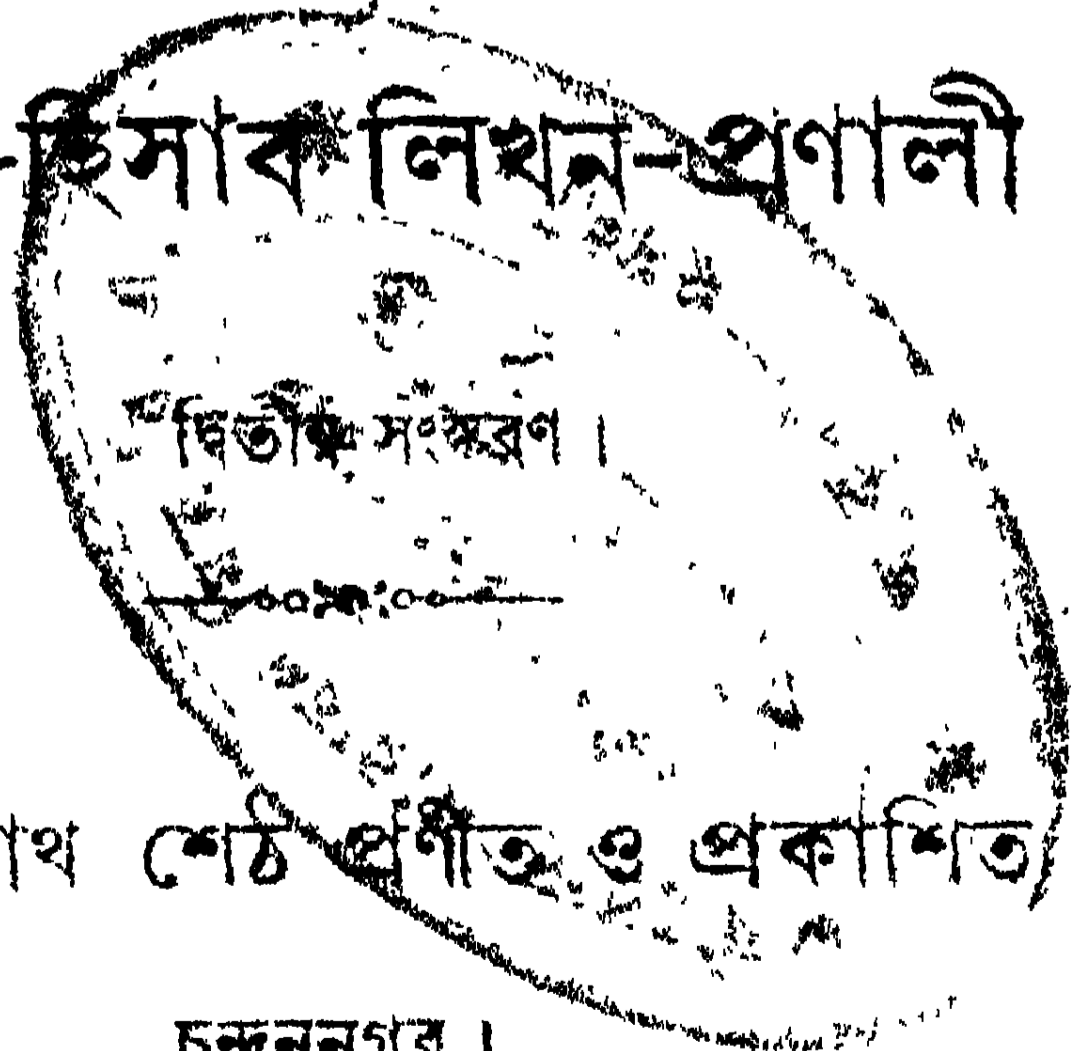 -হিসাব লিখন-প্রণালী
দ্বিতীয় সংস্করণ ।
াথ শেঠ প্রণীত ও প্রকাশিত
চন্দননগর ।